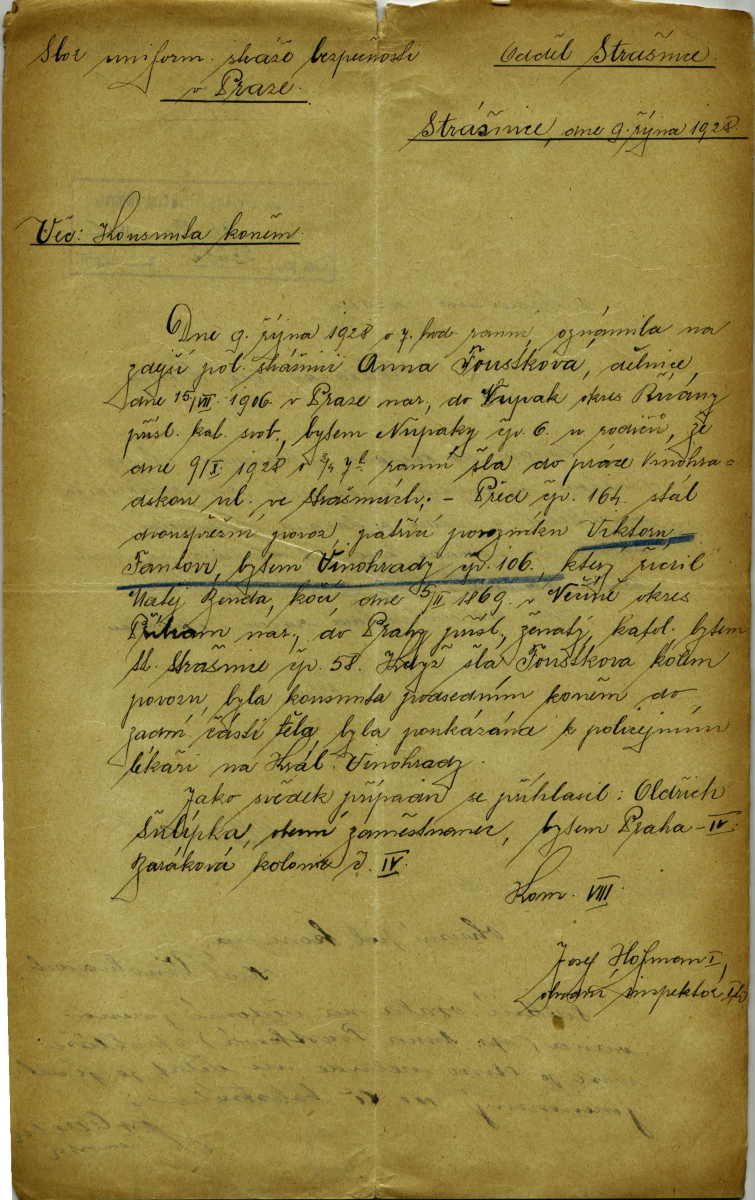 Sbor uniform. stráže bezpečnosti
v Praze.
Odděl Strašnice.
Strašnice, dne 9. října 1928.
Věc: Kousnuta koněm.
Dne 9. října 1928 o 7. hod. ranní, oznámila na
zdejší pol. strážnici Anna Foustkova, dělnice,
dne 15/VII. 1906 v Praze nar., do Nupak okres Říčány
přísl. kat. svob., bytem Nupaky čp. 6. u rodičů, že
dne 9/X 1928 o 3/4 7 h. ranní šla do práce Vinohra=
dskou ul. ve Strašnicích. – Před čp. 164. stál
dvouspřežní povoz, patřící povozníku Viktoru
Fantovi, bytem Vinohrady čp. 106., který řídil
Matěj Benda, kočí, dne 5/II 1869. v okres
Příbram nar., do Prahy přísl., ženatý, katol. bytem
St. Strašnice čp. 58. Když šla Foustkova kolem
povozu, byla kousnuta podsedním koněm do
zadní části těla byla poukázána k policejnímu
lékaři na Král. Vinohrady.
Jako svědek případu se přihlásil: Oldřich
Šulipka, obecní zaměstnanec, bytem Praha – IV.
kolonie č. IV.
Kom. VIII.
Josef Hofman I,
obvodní inspektor